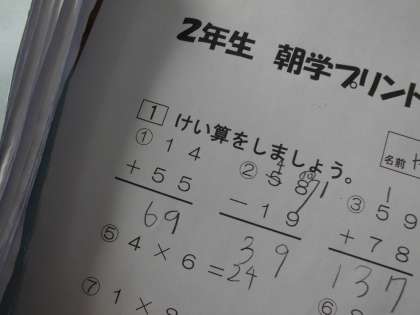 2年生 朝学プリント
1 けい算をしましょう。
名前
① 14
+55
69
② 58
-19
39
③ 59
+78
137
⑤ 4×6=24
⑥
⑦ 1×